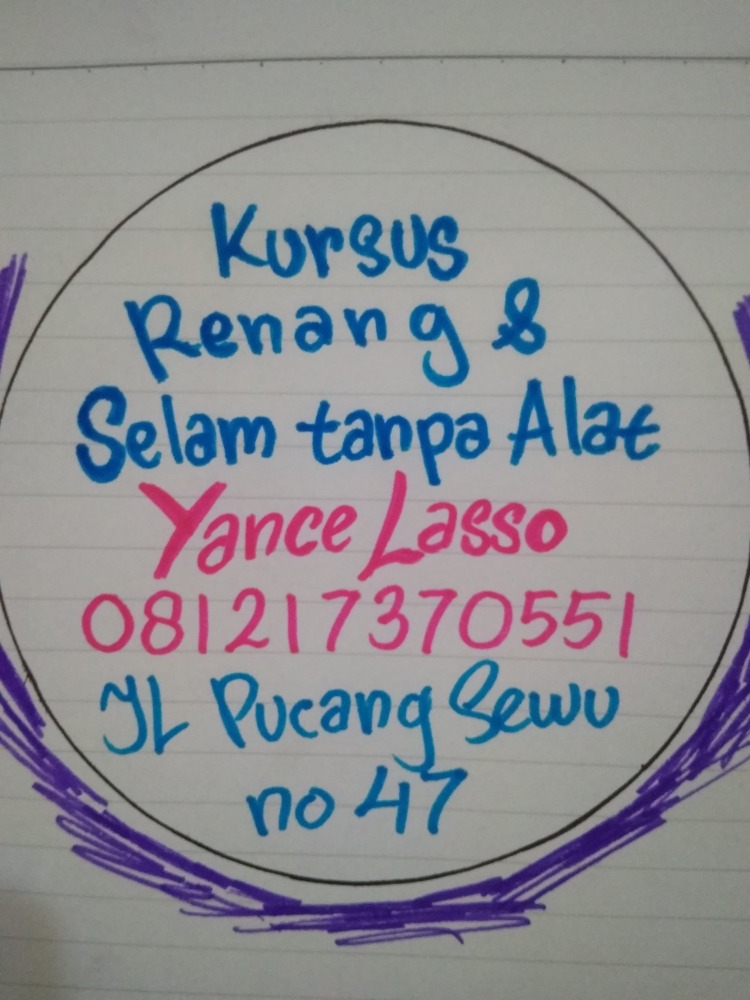 Kursus
Renang &
Selam tanpa Alat
Yance Lasso
081217370551
JL Pucang Sewu
no 47